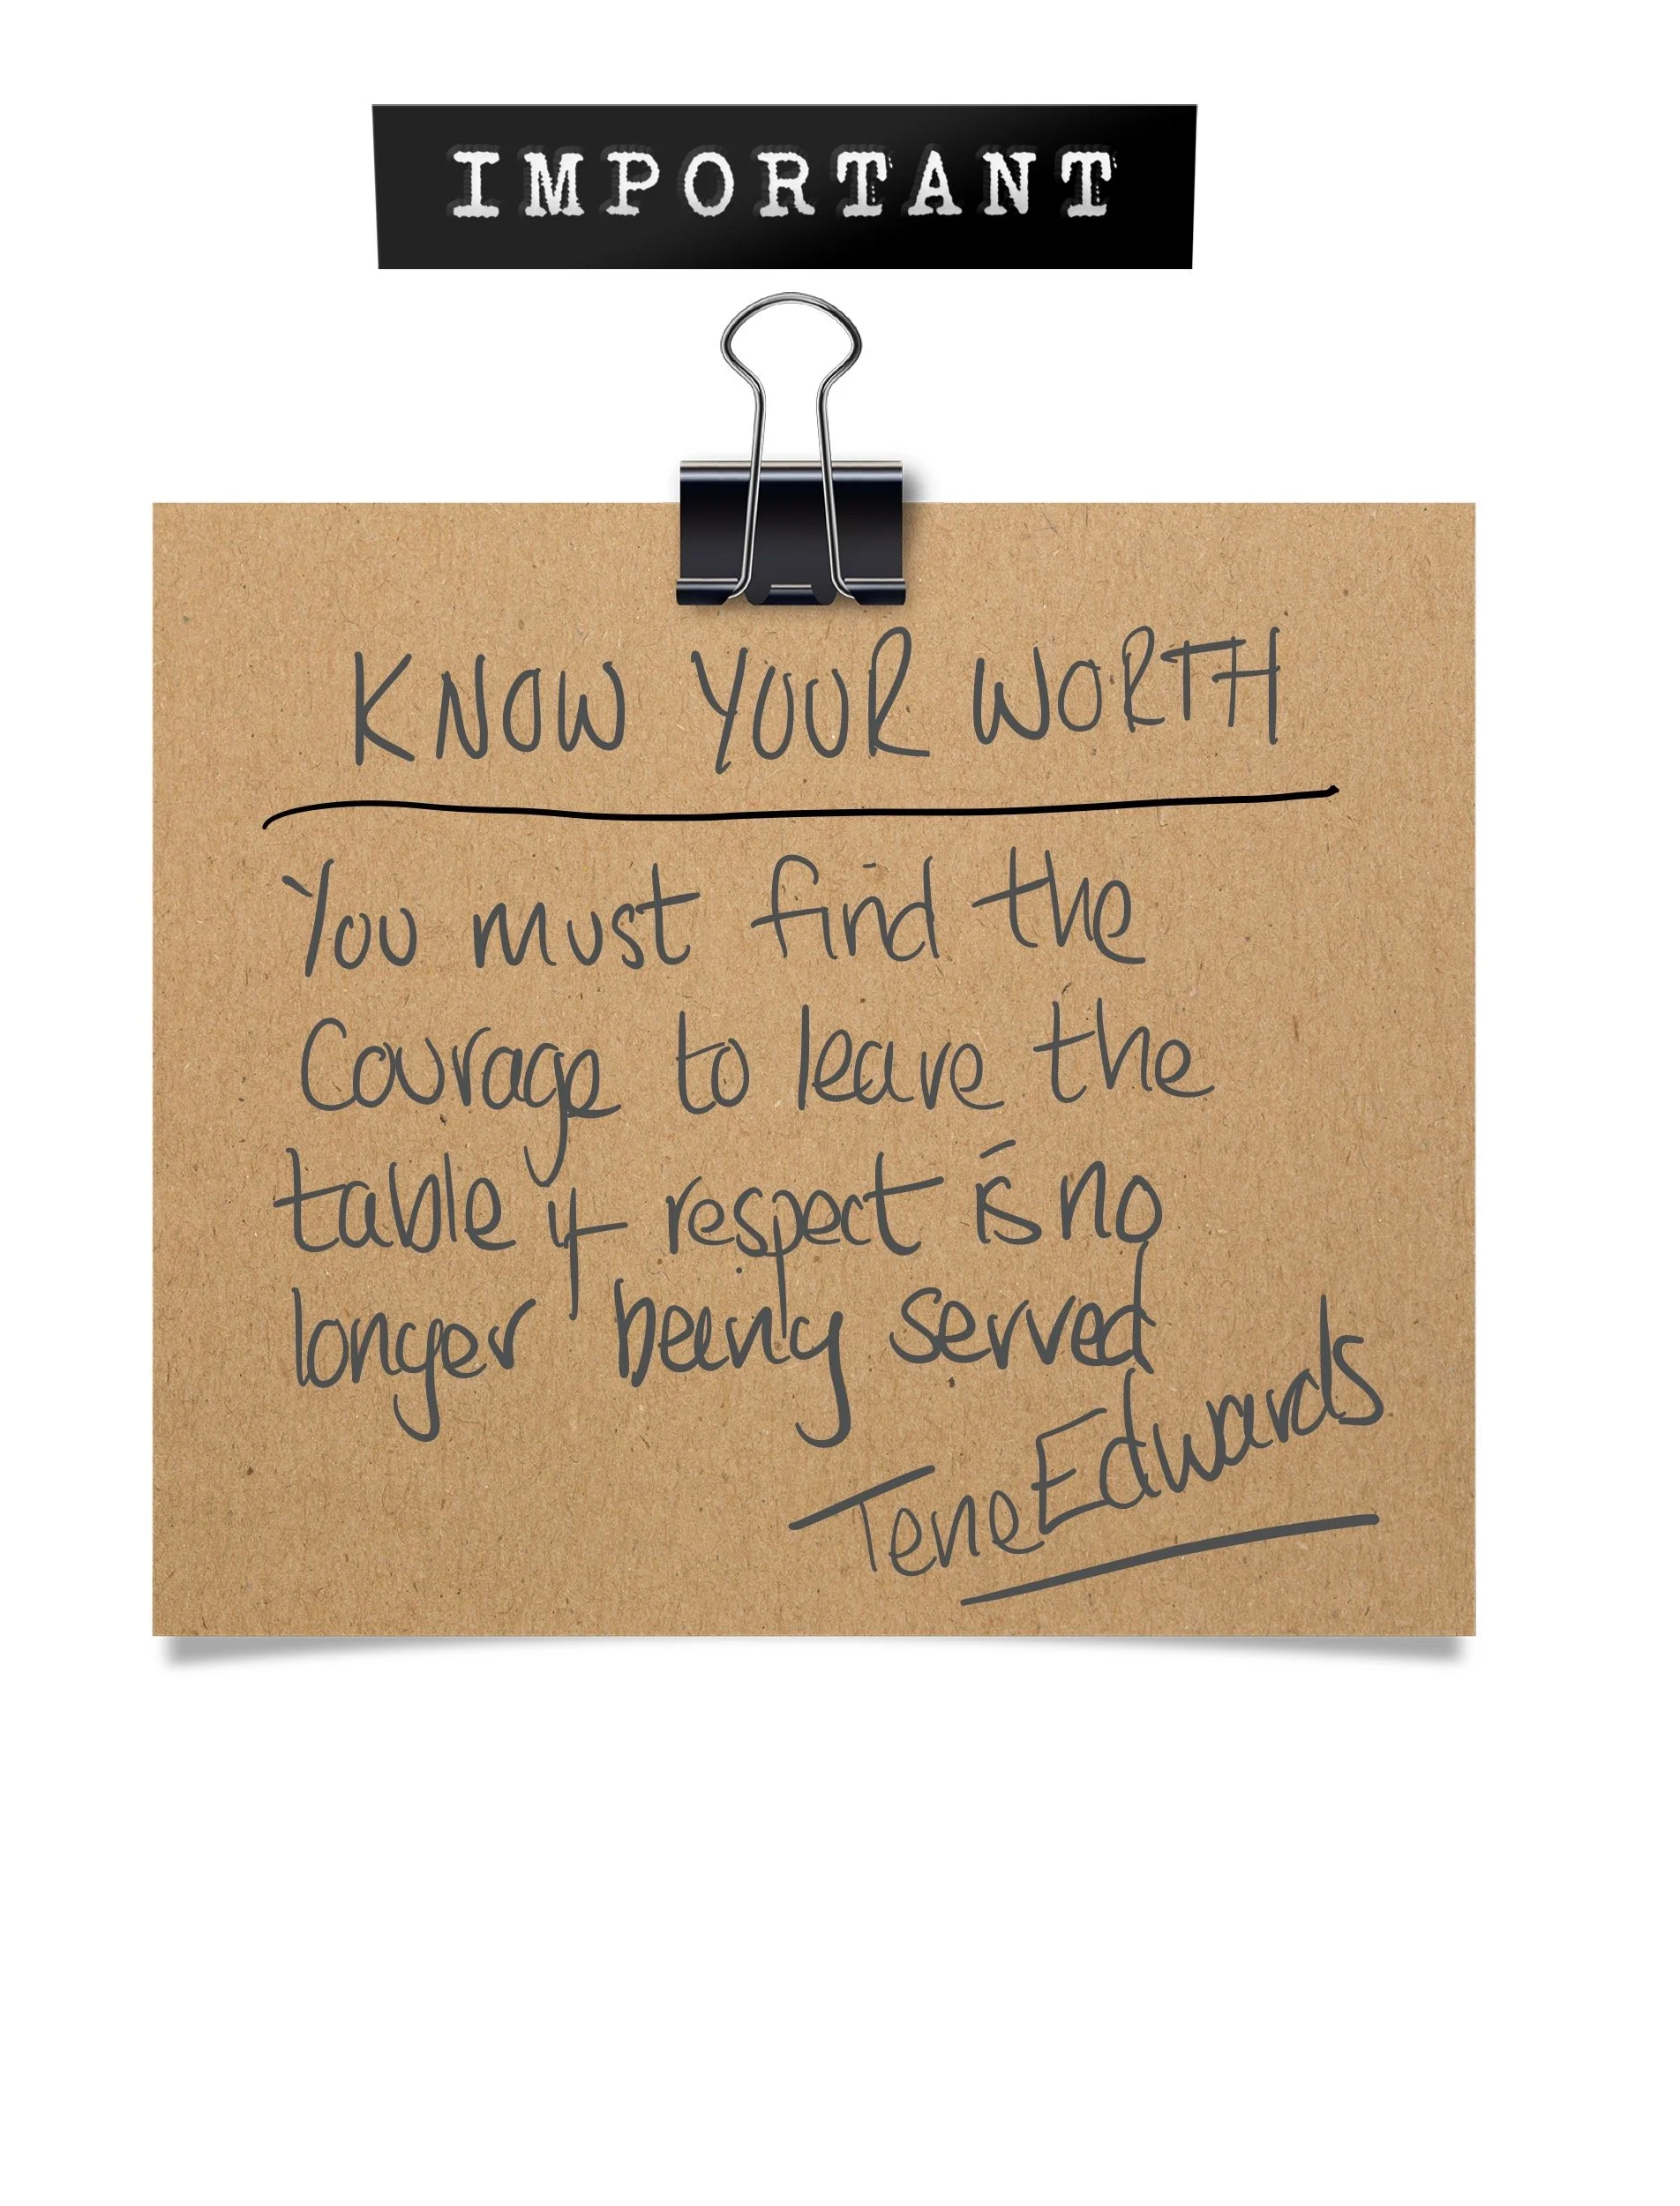 IMPORTANT
KNOW YOUR WORTH
You must find the
Courage to leave the
table if respect is no
longer being served
Tene Edwards